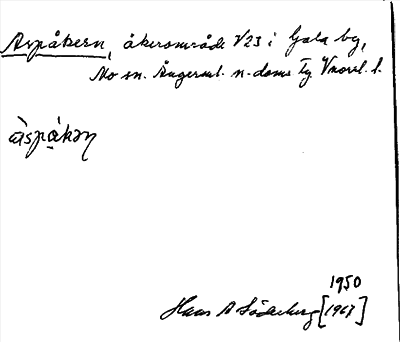 Aspåkern, åkerområde V23 i Gala by,
Mo sn. Ångerml. n. doms Tg Vnorrl. l.
àspákən
1950
Hans A Söderberg [1967]